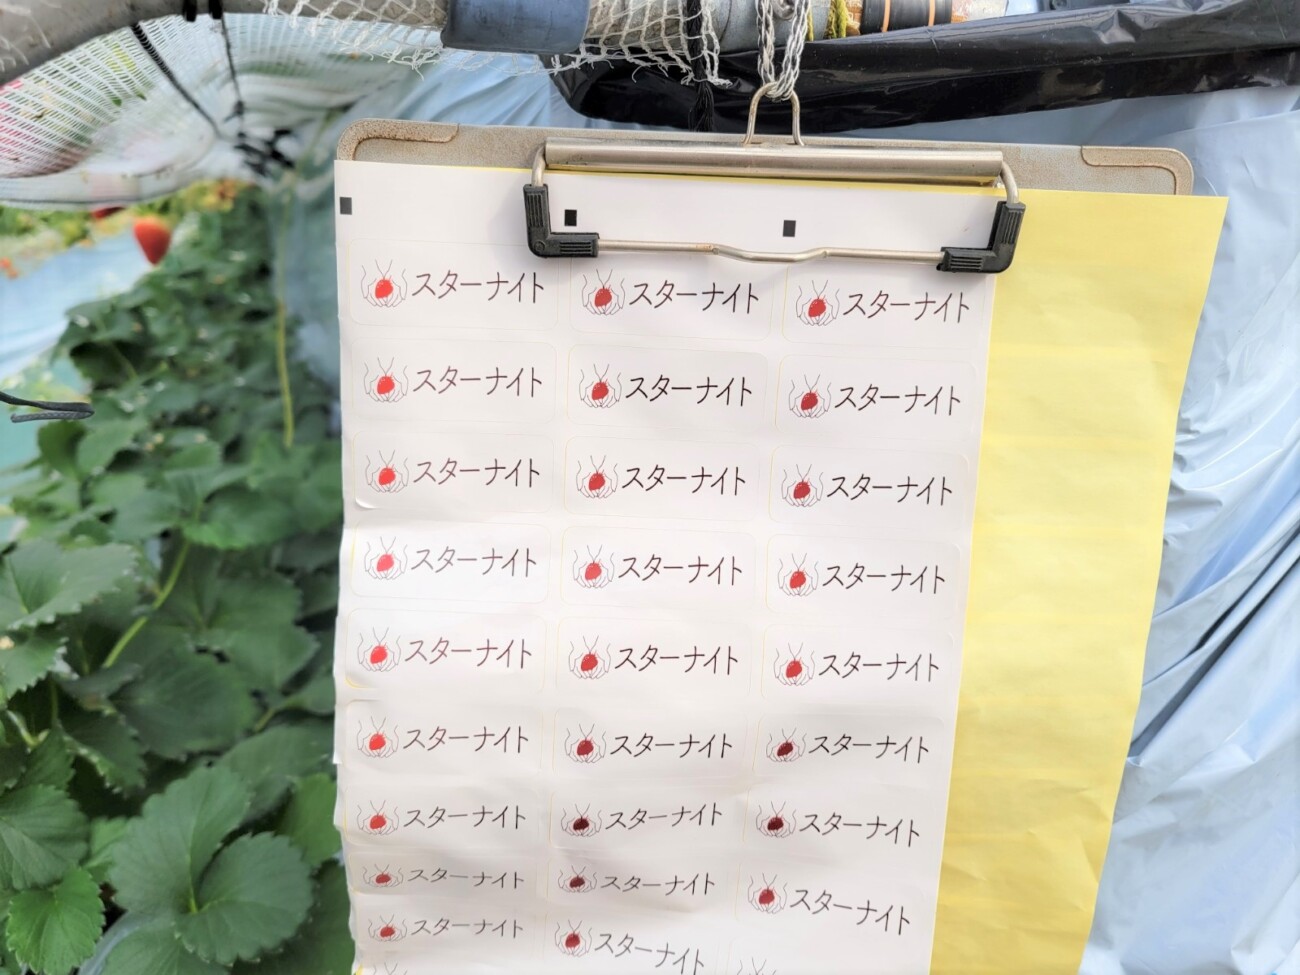 スターナイト スターナイト スターナイト
スターナイト スターナイト スターナイト
スターナイト スターナイト スターナイト
スターナイト スターナイト スターナイト
スターナイト スターナイト スターナイト
スターナイト スターナイト スターナイト
スターナイト スターナイト スターナイト
スターナイト スターナイト スターナイト
スターナイト スターナイト